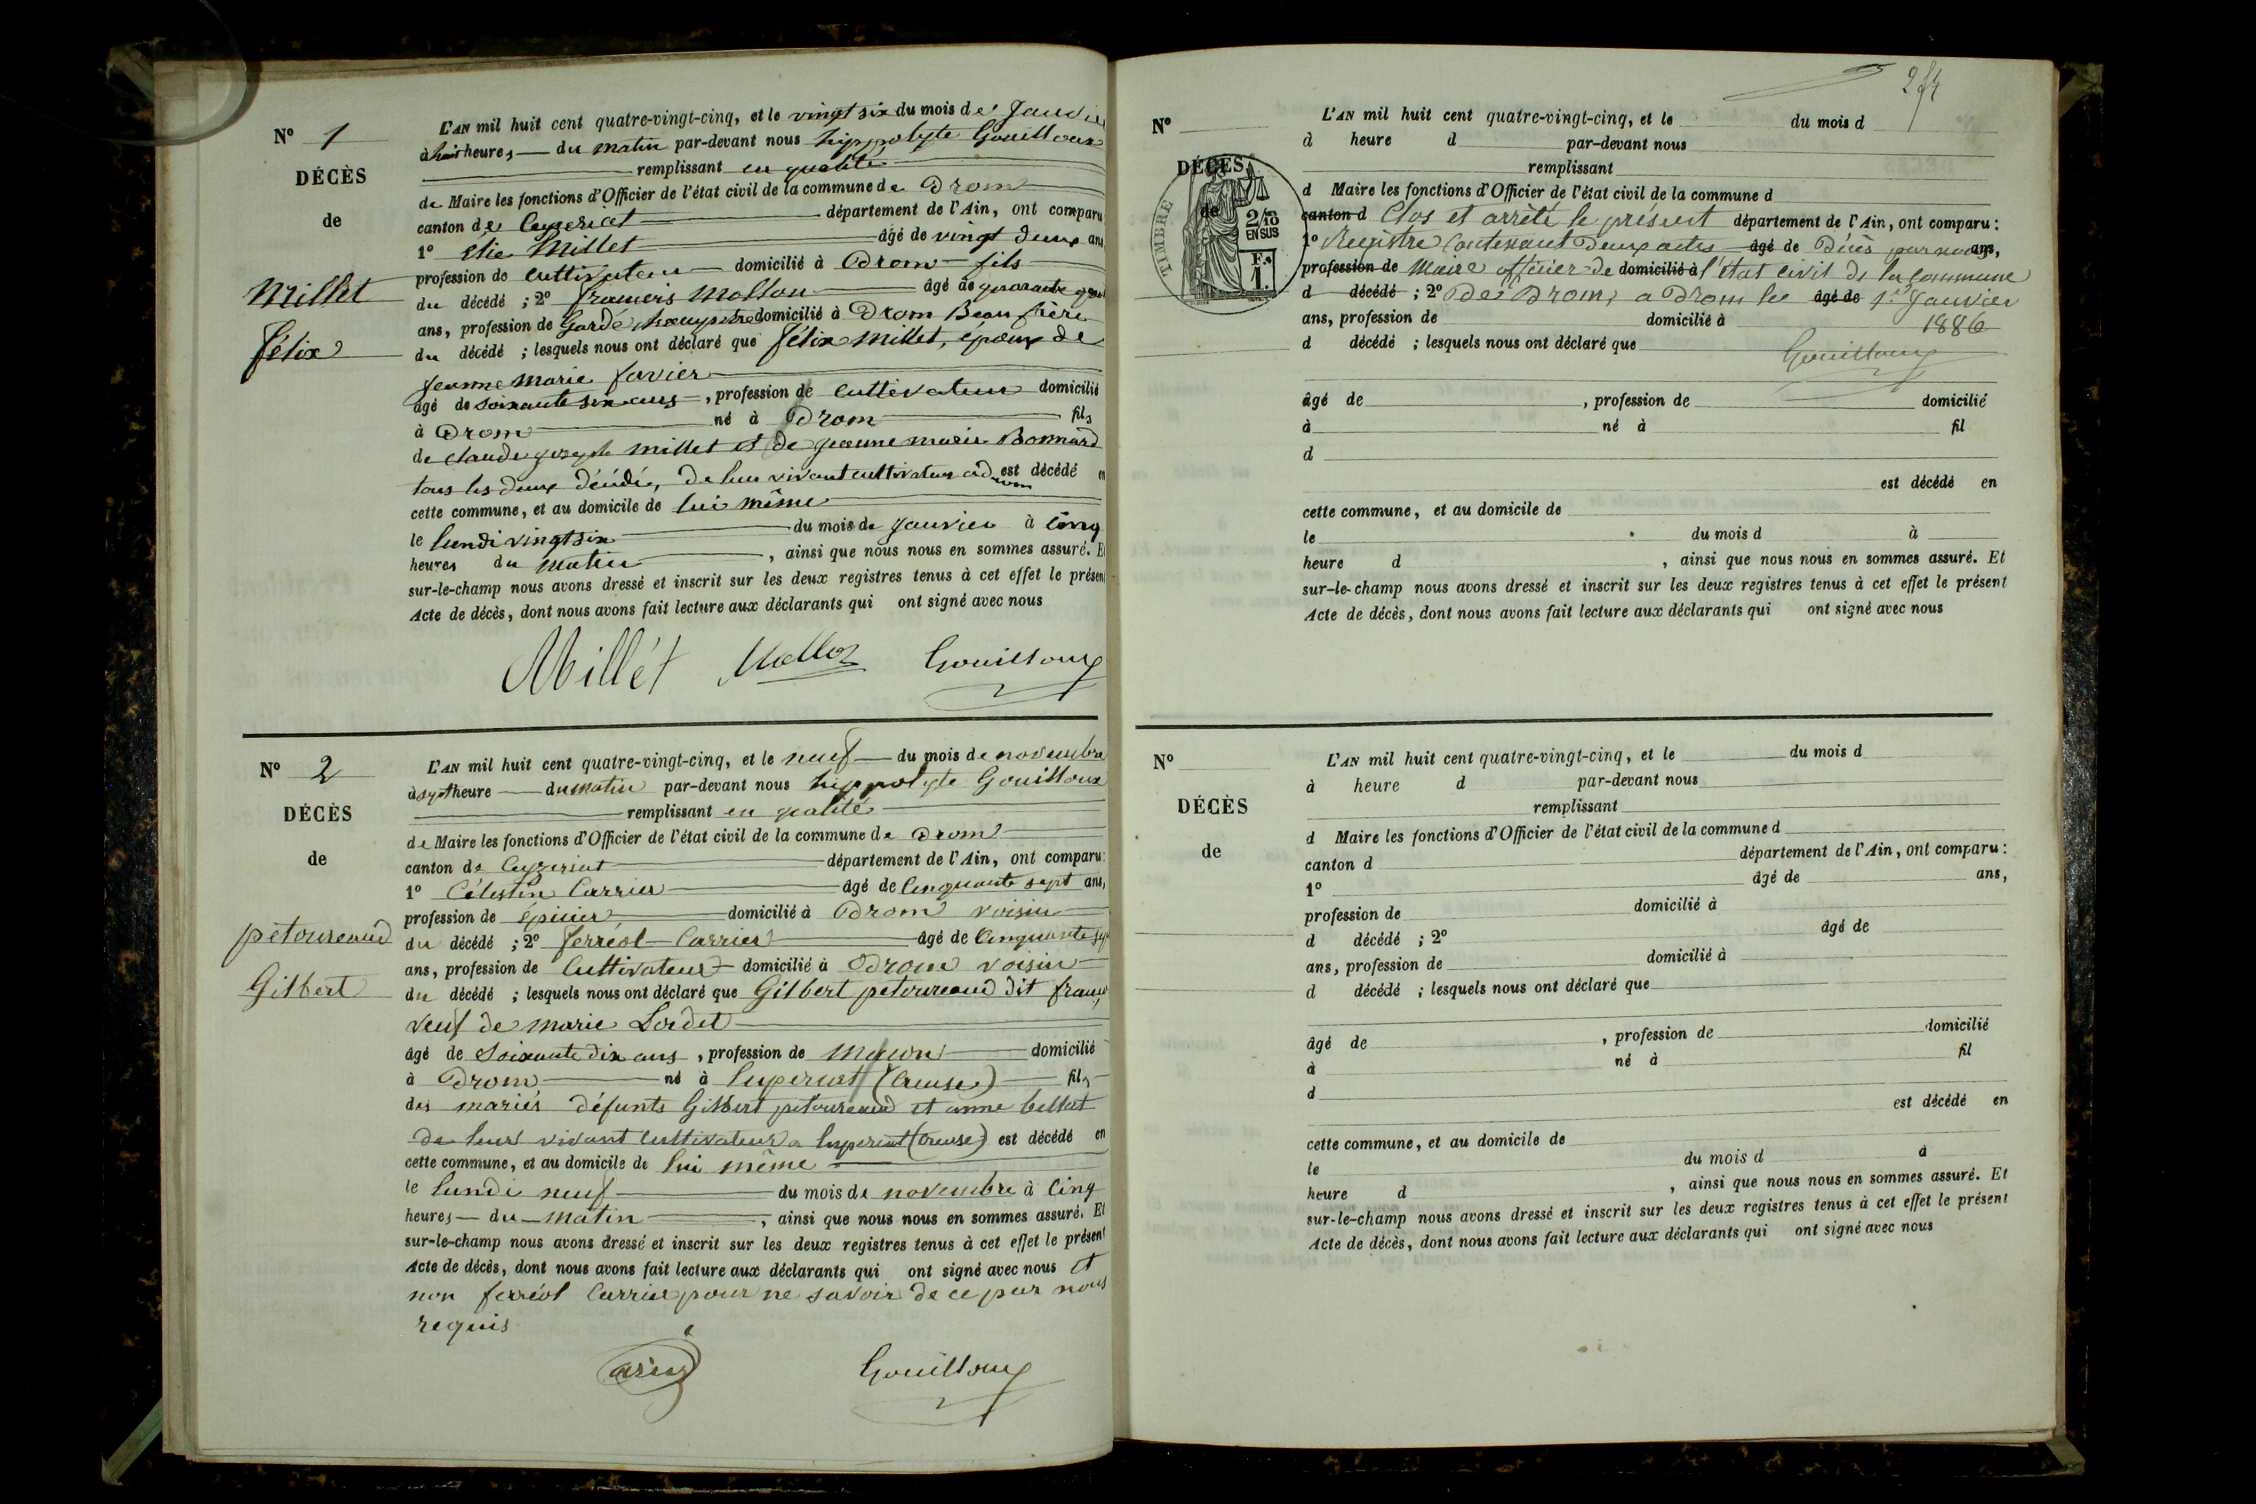 N° 1
DÉCÈS
de
Millet
félix
L'AN mil huit cent quatre-vingt-cinq, et le vingt six du mois de Janvier
à huit heures du matin par-devant nous hippolyte Gouilloux
remplissant en qualité
de Maire les fonctions d'Officier de l'état civil de la commune de Drom
canton de Ceyzeriat département de l'Ain, ont comparu
1° élie Millet âgé de vingt deux ans
profession de cultivateur domicilié à Drom fils
du décédé ; 2° françois Mollon âgé de quarante
ans, profession de Garde champêtre domicilié à Drom Beau frère
du décédé ; lesquels nous ont déclaré que félix Millet, époux de
Jeanne Marie favier
âgé de soixante six ans, profession de cultivateur domicilié
à Drom né à Drom fils
de claude joseph Millet et de jeanne marie Bonnard
tous les deux décédés, de leur vivant cultivateurs à drom est décédé en
cette commune, et au domicile de lui même
le lundi vingt six du mois de janvier à cinq
heures du matin, ainsi que nous nous en sommes assuré. Et
sur-le-champ nous avons dressé et inscrit sur les deux registres tenus à cet effet le présent
Acte de décès, dont nous avons fait lecture aux déclarants qui ont signé avec nous
Millét Mollon Gouilloux
N° 2
DÉCÈS
de
petoureaud
Gilbert
L'AN mil huit cent quatre-vingt-cinq, et le neuf du mois de novembre
à sept heure du matin par-devant nous hippolyte Gouilloux
remplissant en qualité
de Maire les fonctions d'Officier de l'état civil de la commune de Drom
canton de Ceyzeriat département de l'Ain, ont comparu:
1° Célestin Carrier âgé de Cinquante sept ans,
profession de épicier domicilié à Drom voisin
du décédé ; 2° ferréol Carrier âgé de Cinquante
ans, profession de Cultivateur domicilié à Drom voisin
du décédé ; lesquels nous ont déclaré que Gilbert petoureaud dit
veuf de marie Lordet
âgé de Soixante dix ans, profession de Maçon domicilié
à Drom né à Lupersat (Creuse) fils
des mariés défunts Gilbert petoureaud et anne
de leur vivant cultivateurs a Lupersat (Creuse) est décédé en
cette commune, et au domicile de lui même
le lundi neuf du mois de novembre à Cinq
heures du matin, ainsi que nous nous en sommes assuré. Et
sur-le-champ nous avons dressé et inscrit sur les deux registres tenus à cet effet le présent
Acte de décès, dont nous avons fait lecture aux déclarants qui ont signé avec nous et
non ferréol Carrier pour ne savoir de ce par nous
requis
Gouilloux
N°
DÉCÈS
de
TIMBRE
2/10
EN SUS
F.
1.
L'AN mil huit cent quatre-vingt-cinq, et le du mois d
à heure d par-devant nous
remplissant
d Maire les fonctions d'Officier de l'état civil de la commune d
canton d Clos et arrêté le présent département de l'Ain, ont comparu :
1° Registre Contenant Deux actes âgé de Décès par nous ans,
profession de Maire officier de domicilié à l'état civil de la commune
d décédé ; 2° De Drom, a Drom le âgé de 1er Janvier
ans, profession de domicilié à 1886
d décédé ; lesquels nous ont déclaré que Gouilloux
âgé de , profession de domicilié
à né à fil
d
est décédé en
cette commune, et au domicile de
le du mois d à
heure d , ainsi que nous nous en sommes assuré. Et
sur-le-champ nous avons dressé et inscrit sur les deux registres tenus à cet effet le présent
Acte de décès, dont nous avons fait lecture aux déclarants qui ont signé avec nous
N°
DÉCÈS
de
L'AN mil huit cent quatre-vingt-cinq, et le du mois d
à heure d par-devant nous
remplissant
d Maire les fonctions d'Officier de l'état civil de la commune d
canton d département de l'Ain, ont comparu :
1° âgé de ans,
profession de domicilié à
d décédé ; 2° âgé de
ans, profession de domicilié à
d décédé ; lesquels nous ont déclaré que
âgé de , profession de domicilié
à né à fil
d
est décédé en
cette commune, et au domicile de
le du mois d à
heure d , ainsi que nous nous en sommes assuré. Et
sur-le-champ nous avons dressé et inscrit sur les deux registres tenus à cet effet le présent
Acte de décès, dont nous avons fait lecture aux déclarants qui ont signé avec nous